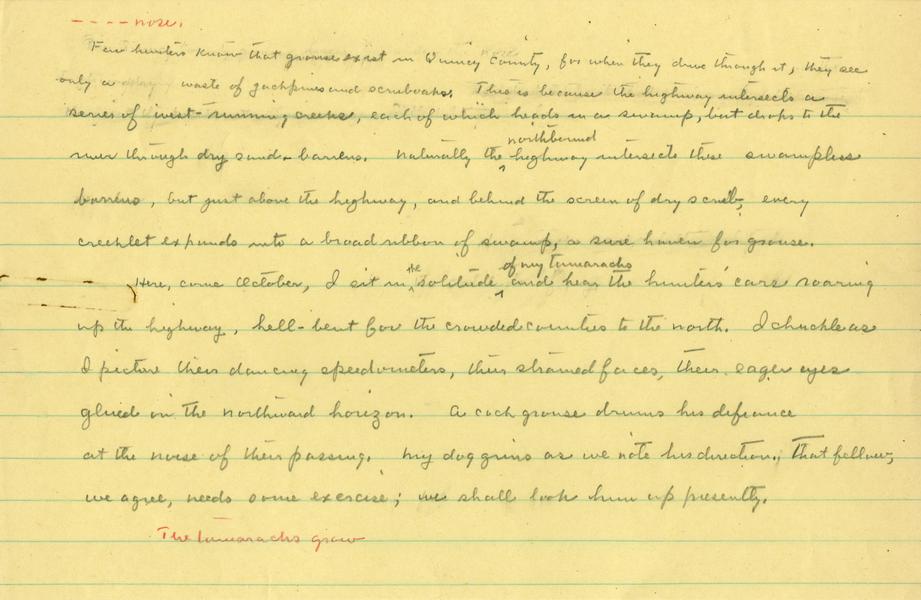 ---- nose.
Few hunters know that grouse exist in Quincy County, for when they drive through it, they see
only a waste of jackpines and scruboaks. This is because the highway intersects a
series of west-running creeks, each of which heads in a swamp, but drops to the
river through dry sand-barrens. Naturally the northbound highway intersects these swampless
barrens, but just above the highway, and behind the screen of dry scrub, every
creeklet expands into a broad ribbon of swamp, a sure haven for grouse.
Here, come October, I sit in the solitude of my tamaracks and hear the hunters' cars roaring
up the highway, hell-bent for the crowded counties to the north. I chuckle as
I picture their dancing speedometers, their strained faces, their eager eyes
glued on the northward horizon. A cock grouse drums his defiance
at the noise of their passing. My dog grins as we note his direction. That fellow,
we agree, needs some exercise; we shall look him up presently.
The tamaracks grow